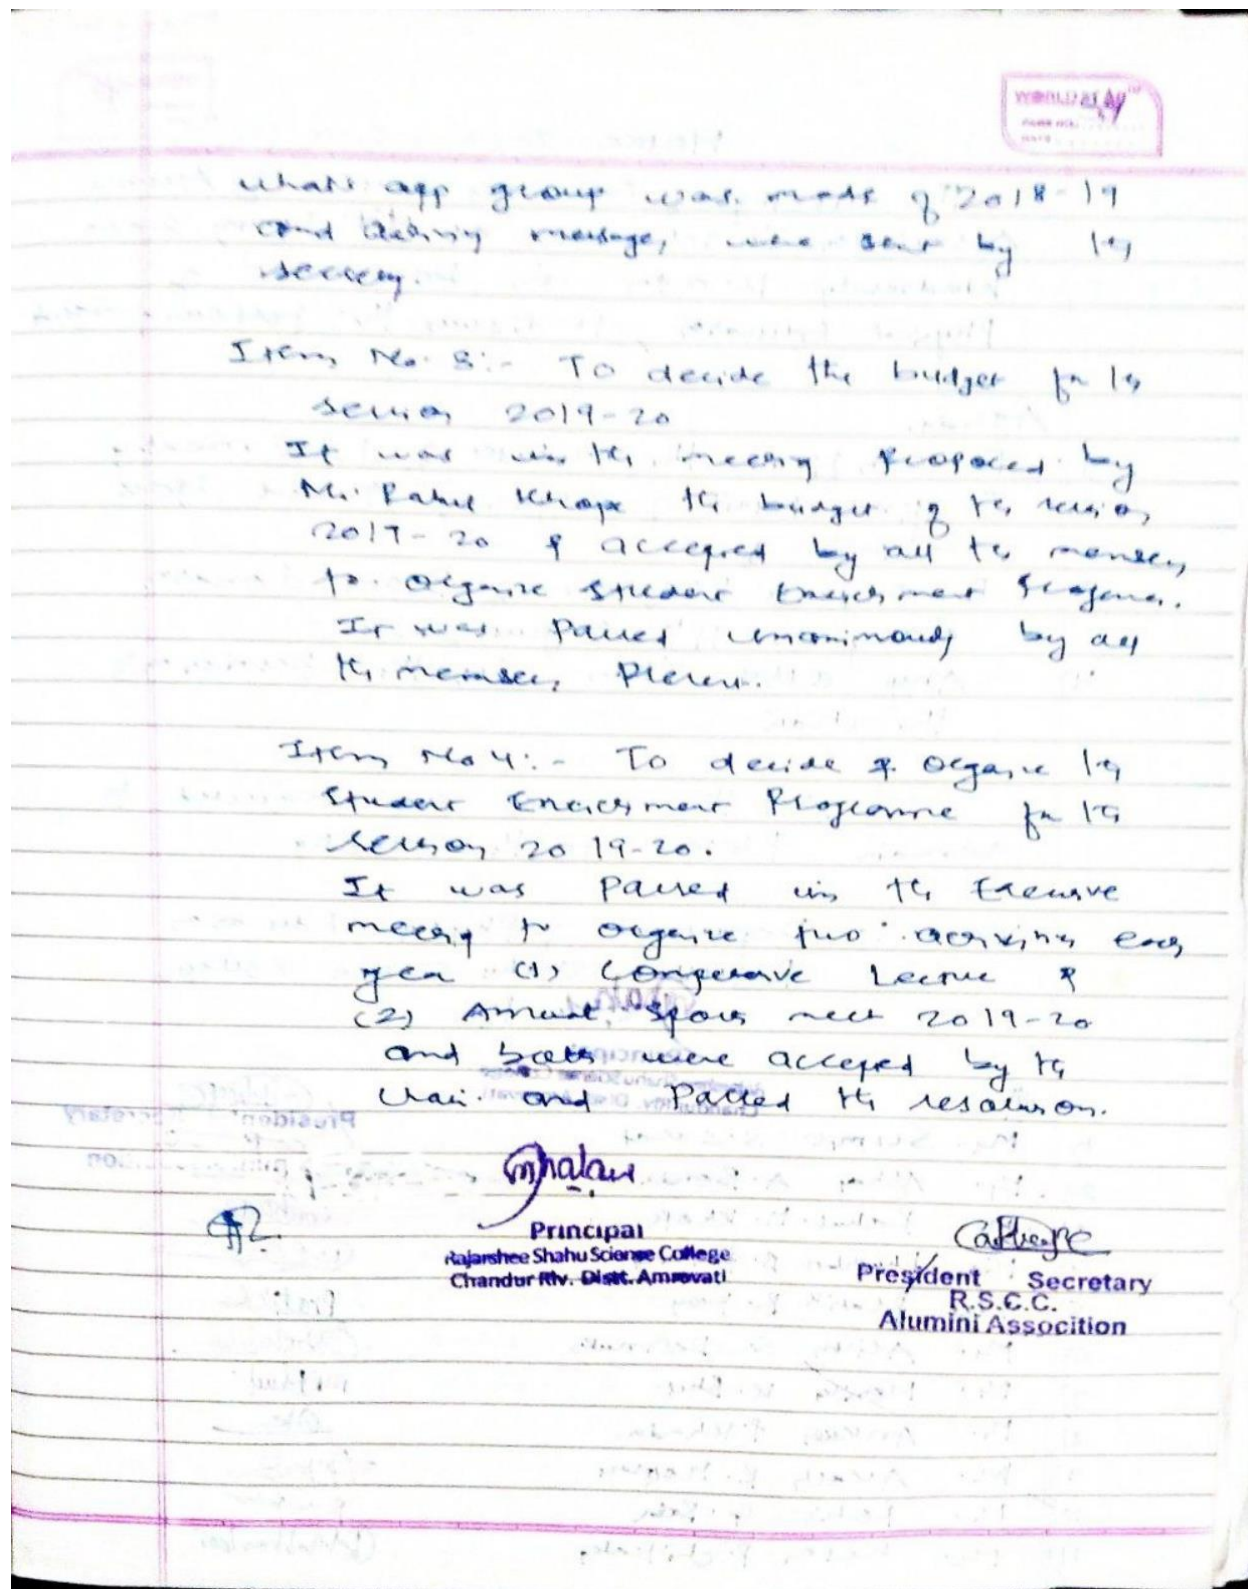 whats app group was made of 2018-19
and activity messages were sent by the
secretary.
Item No. 3:- To decide the budget for the
session 2019-20
It was in the meeting proposed by
Mr. Rahul Khope the budget of the session
2019-20 & accepted by all the members
to organize Student Enrichment Programe.
It was Passed unanimously by all
the members Present.
Item No 4:- To decide & organize the
Student Enrichment Programme for the
session 2019-20.
It was Passed in the Executive
meeting to organize two activities each
year (1) Competative Lecture &
(2) Annual Sports meet 2019-20
and both were accepted by the
Chair and Passed the resolution.
Principal
Rajarshee Shahu Science College
Chandur Rlv. Distt. Amravati
President Secretary
R.S.C.C.
Alumini Assocition